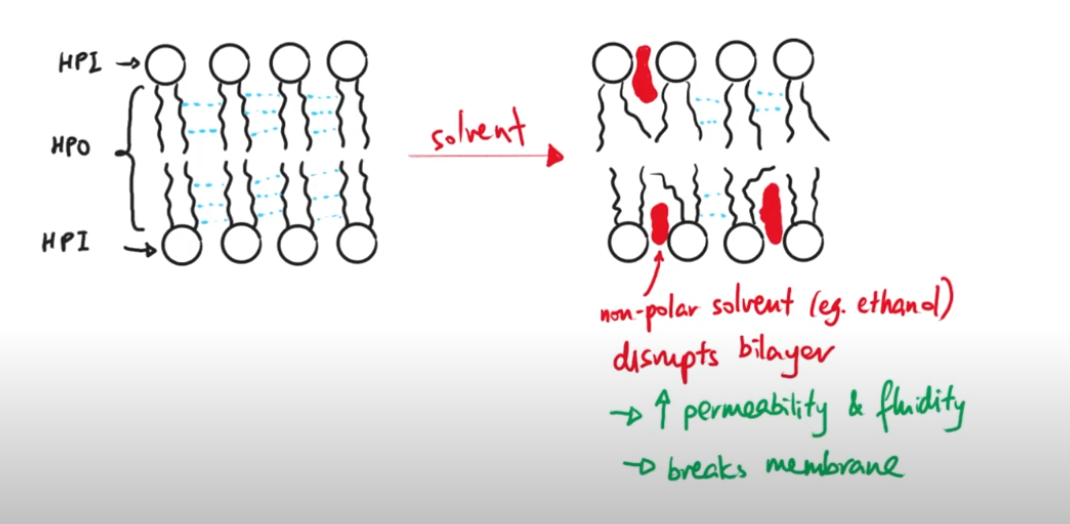 HPI
HPO
HPI
solvent
non-polar solvent (eg. ethanol)
disrupts bilayer
→ ↑ permeability & fluidity
→ breaks membrane